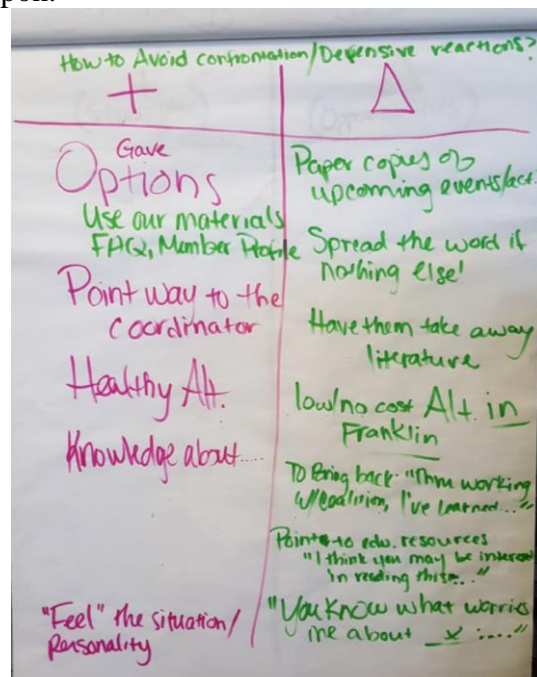 pon.
How to Avoid confrontation/Defensive reactions?
+
Δ
Gave
Options
Use our materials
FAQ, Member Profile
Point way to the
coordinator
Healthy Alt.
Knowledge about.....
"Feel" the situation/
Personality
Paper copies of
upcoming events/act.
Spread the word if
nothing else!
Have them take away
literature
low/no cost Alt. in
Franklin
To Bring back "Thru working
w/coalition, I've learned..."
Point to edu. resources
"I think you may be interested
in reading this..."
"You know what worries
me about x ...."